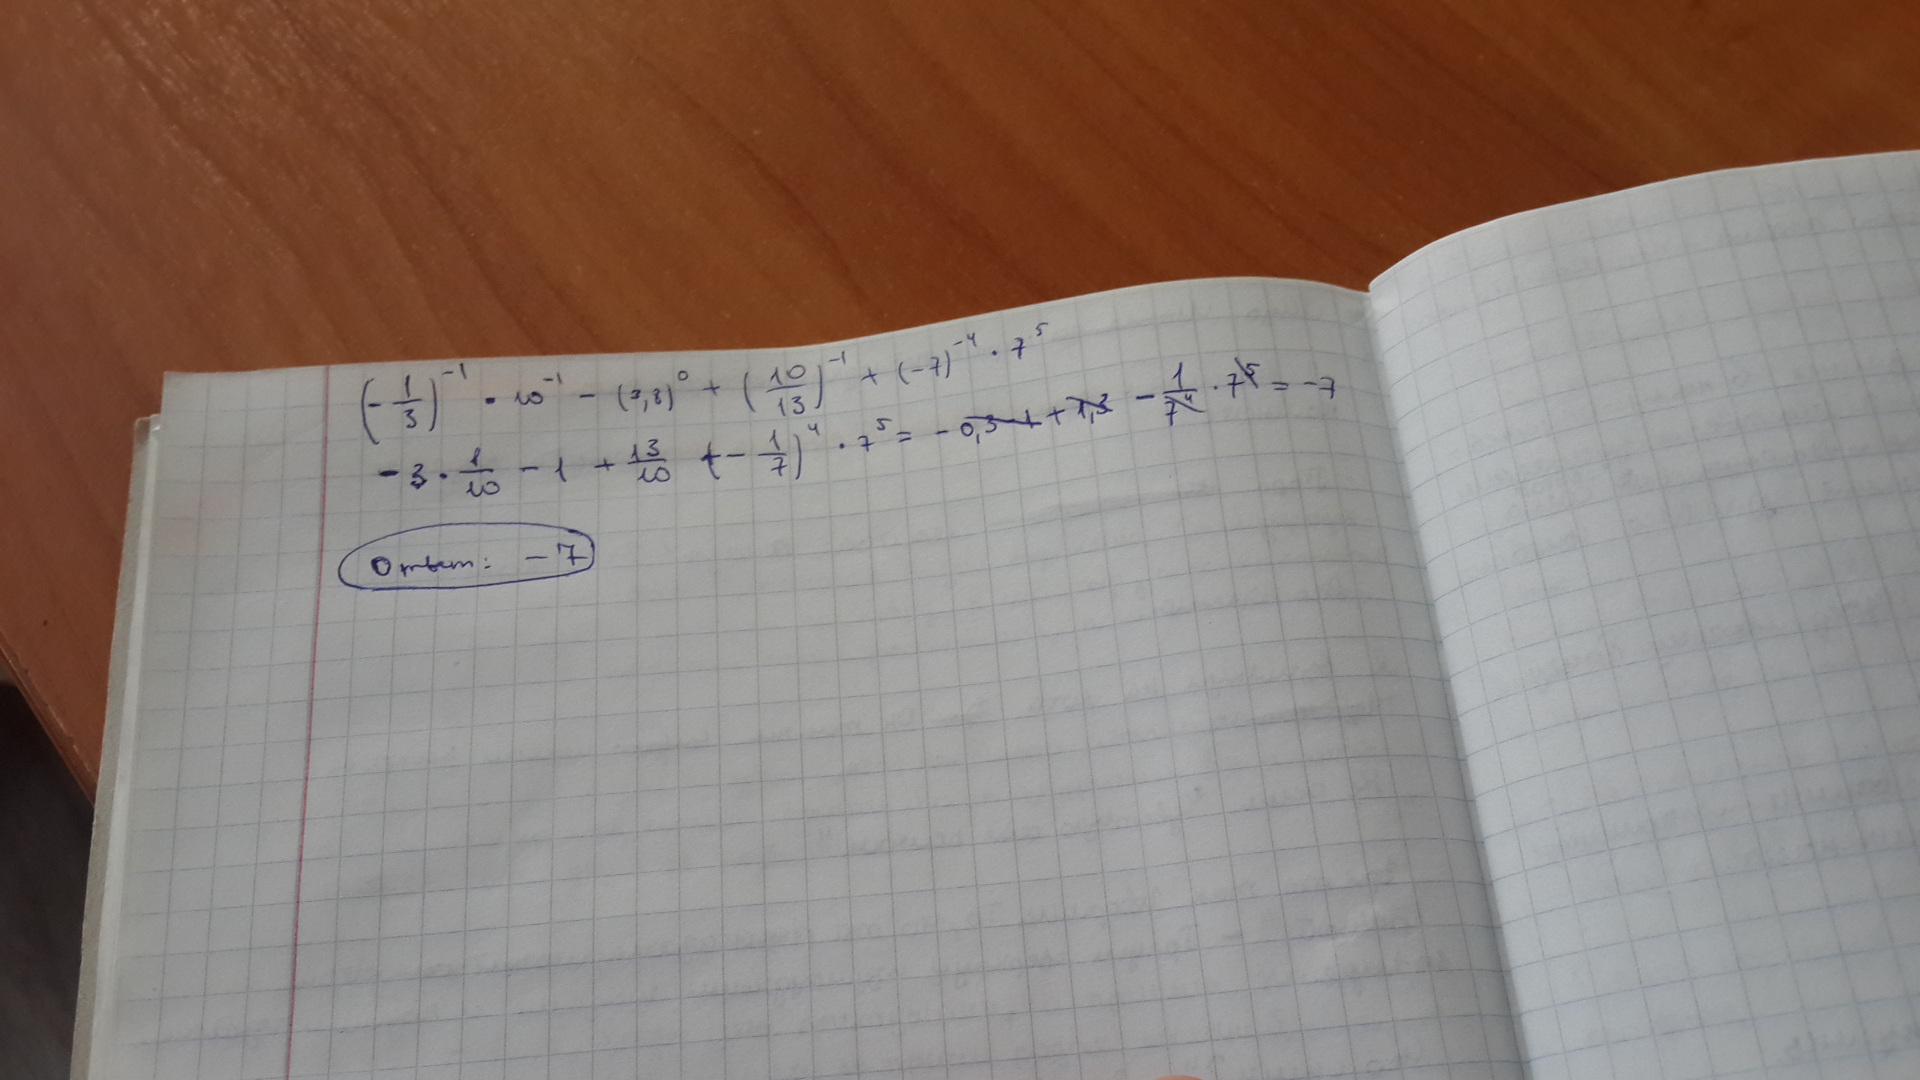 (-1/3)^-1 · 10^-1 - (3,8)^0 + (10/13)^-1 + (-7)^-4 · 7^5
-3 · 1/10 - 1 + 13/10 + (-1/7)^4 · 7^5 = -0,3-1 + 1,3 - 1/7^4 · 7^5 = -7
Ответ: -7